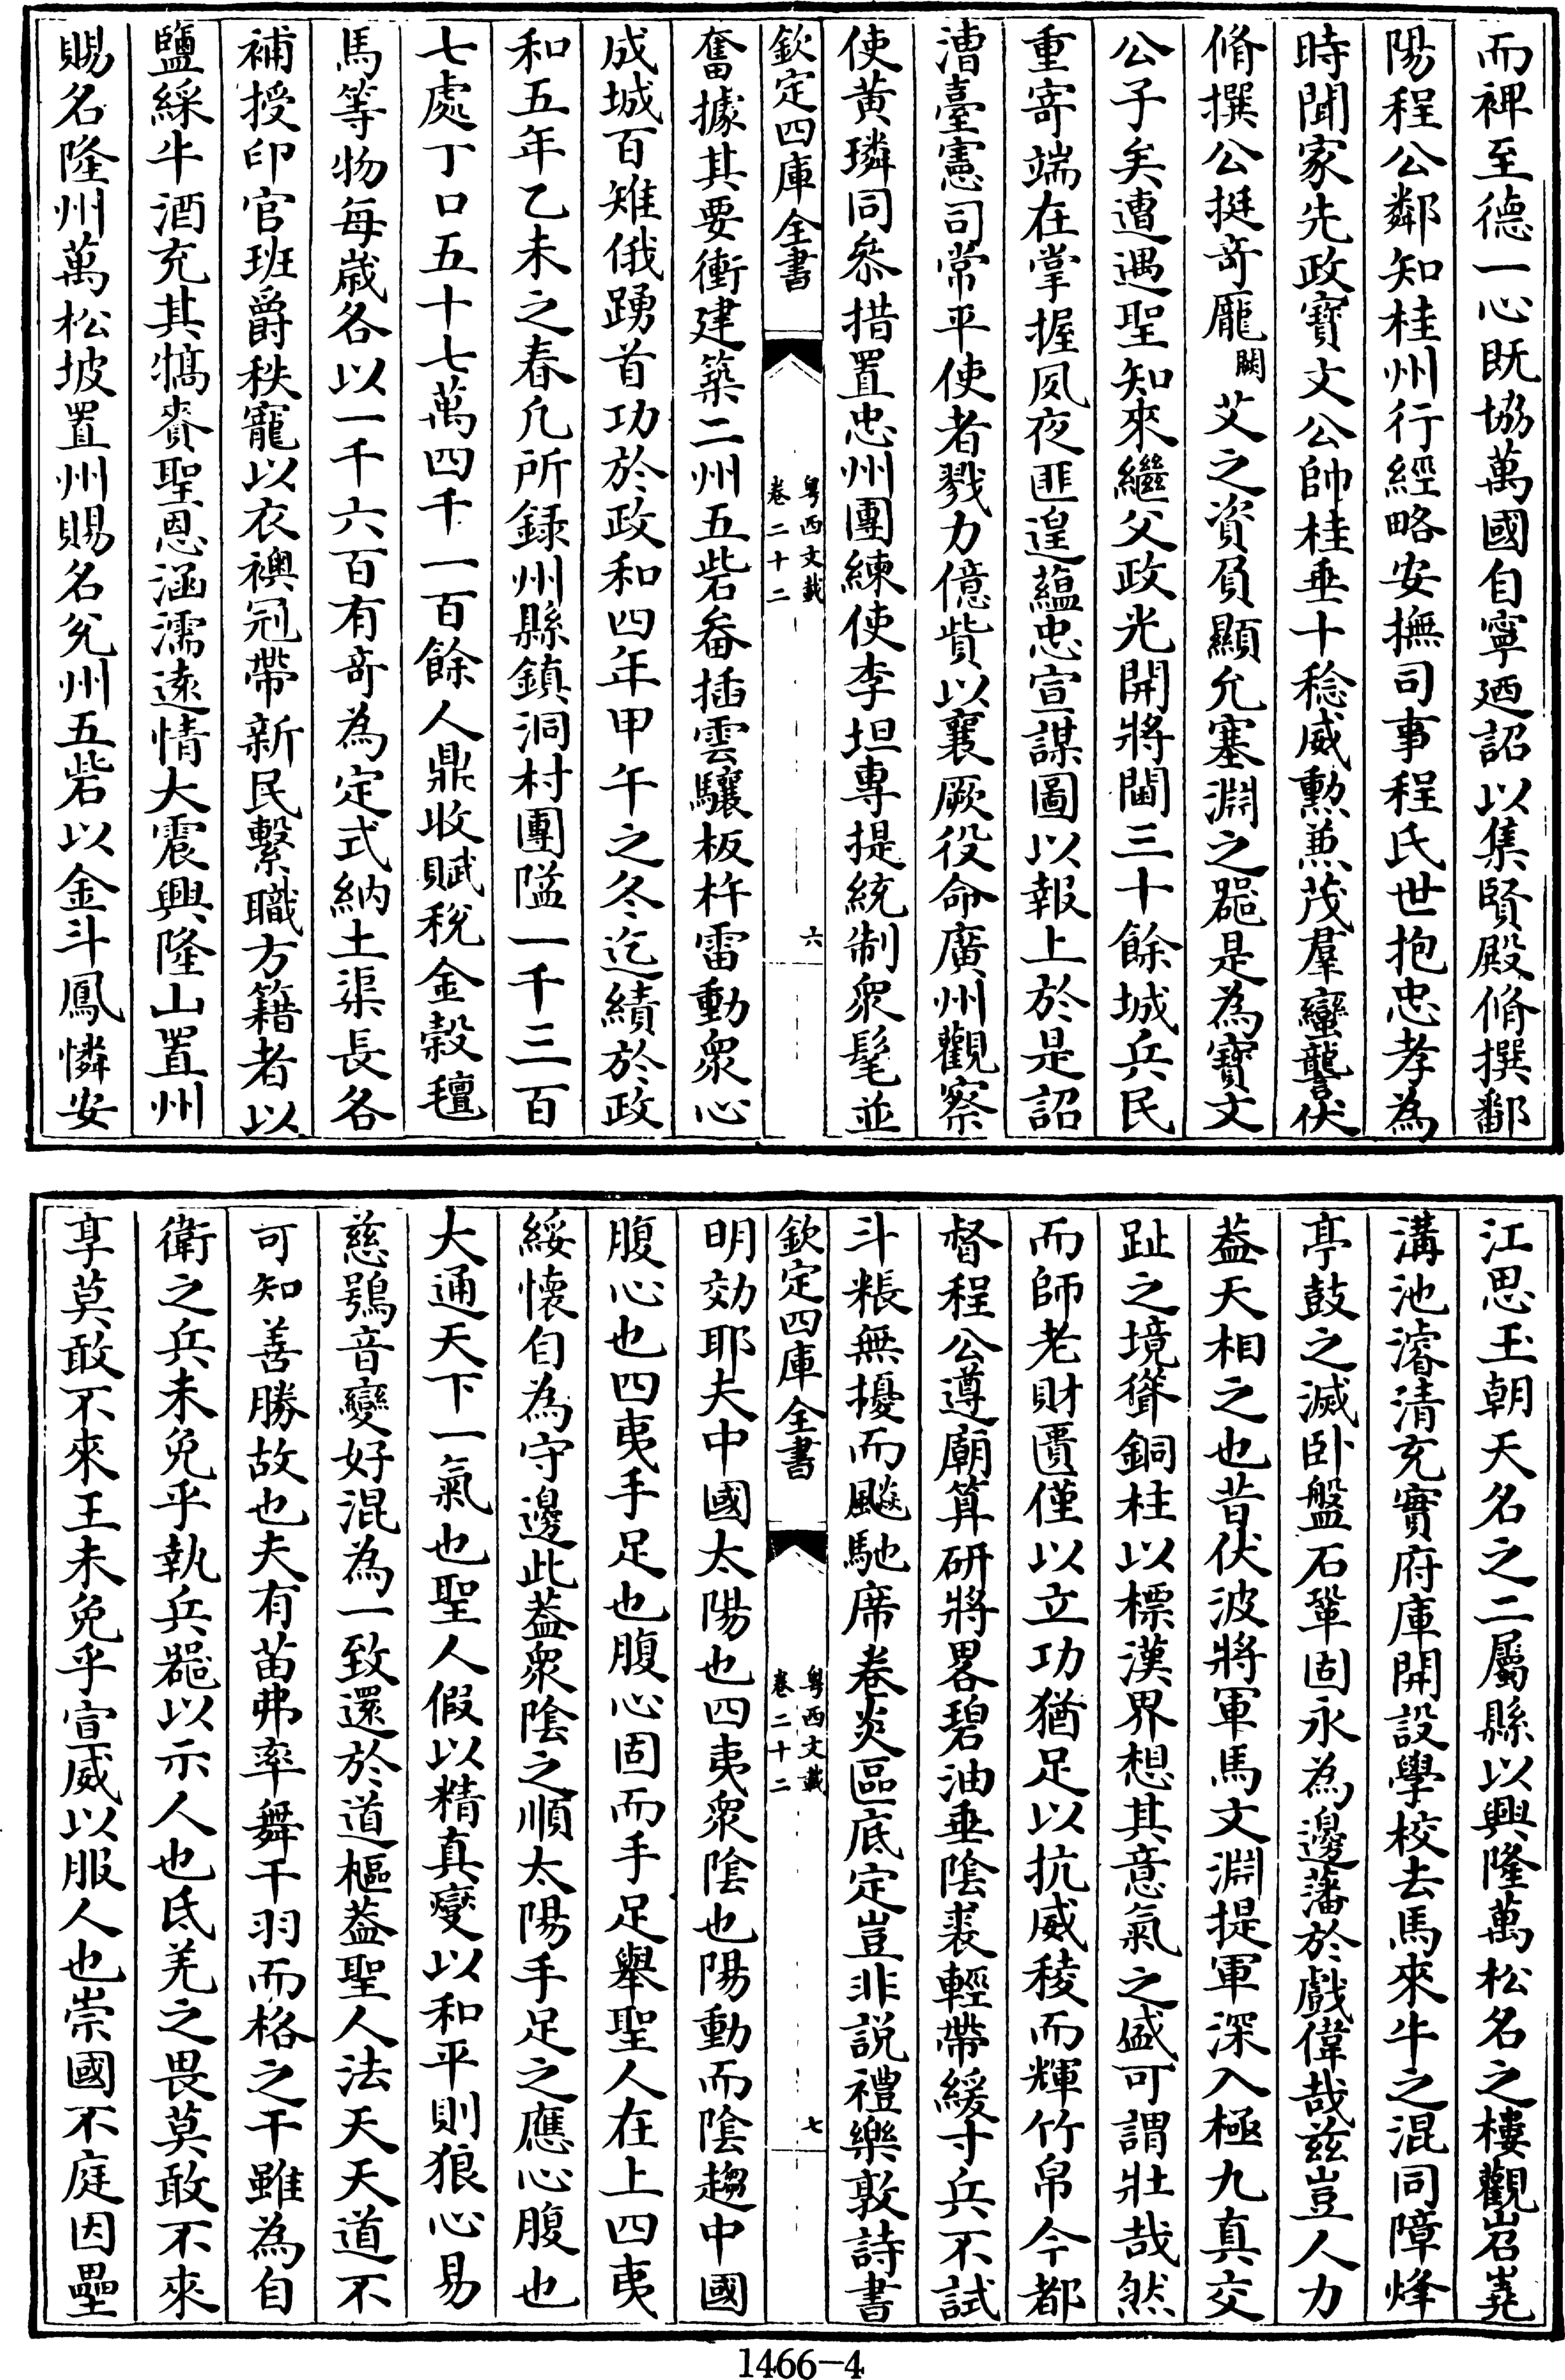 而裨至德一心既協萬國自寧廼詔以集賢殿脩撰鄱
陽程公鄰知桂州行經略安撫司事程氏世抱忠孝為
時聞家先政寶文公帥桂垂十稔威勲兼茂羣蠻讋伏
脩撰公挺竒龎闕艾之資負顯允塞淵之器是為寶文
公子矣遭遇聖知來繼父政光開將閫三十餘城兵民
重寄端在掌握夙夜匪遑蘊忠宣謀圖以報上於是詔
漕臺憲司常平使者戮力億貲以襄厥役命廣州觀察
使黄璘同叅措置忠州團練使李坦專提統制衆髦並
欽定四庫全書
粤西文載
卷二十二
六
奮據其要衝建築二州五砦畚插雲驤板杵雷動衆心
成城百雉俄踴首功於政和四年甲午之冬迄績於政
和五年乙未之春凡所録州縣鎮洞村團隘一千三百
七處丁口五十七萬四千一百餘人鼎收賦稅金榖氊
馬等物每歲各以一千六百有竒為定式納土渠長各
補授印官班爵秩寵以衣襖冠帶新民繫職方籍者以
鹽綵牛酒充其犒賚聖恩涵濡逺情大震興隆山置州
賜名隆州萬松坡置州賜名兊州五砦以金斗鳳憐安
江思玉朝天名之二屬縣以興隆萬松名之樓觀岧嶤
溝池濬清充實府庫開設學校去馬來牛之混同障烽
亭鼓之滅卧盤石鞏固永為邊藩於戲偉哉兹豈人力
葢天相之也昔伏波將軍馬文淵提軍深入極九真交
趾之境聳銅柱以標漢界想其意氣之盛可謂壯哉然
而師老財匱僅以立功猶足以抗威稜而輝竹帛今都
督程公遵廟算研將畧碧油垂陰裘輕帶緩寸兵不試
斗粻無擾而飇馳席卷炎區底定豈非說禮樂敦詩書
欽定四庫全書
粤西文載
卷二十二
七
明効耶夫中國太陽也四夷衆陰也陽動而陰趨中國
腹心也四夷手足也腹心固而手足舉聖人在上四夷
綏懷自為守邊此葢衆陰之順太陽手足之應心腹也
大通天下一氣也聖人假以精真變以和平則狼心易
慈鴞音變好混為一致還於道樞葢聖人法天天道不
可知善勝故也夫有苗弗率舞干羽而格之干雖為自
衛之兵未免乎執兵器以示人也氐羌之畏莫敢不來
享莫敢不來王未免乎宣威以服人也崇國不庭因壘
1466-4